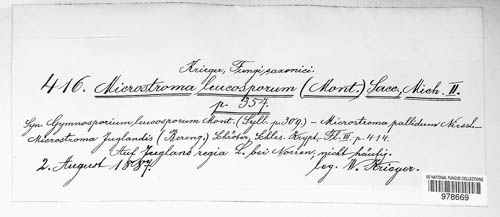 Krieger, Fungi saxonici.
416. Microstroma leucosporum (Mont.) Sacc, Mich. II.
p. 354.
Syn. Gymnosporium leucosporum Mont. (Syll. p. 309.) — Microstroma pallidum Niessl.
Microstroma Juglandis (Bereng.) Schröter, Schles. Krypt. Fl. III. p. 414.
Auf Juglans regia L. bei Nossen, nicht häufig.
2. August 1887. leg. W. Krieger.
US NATIONAL FUNGUS COLLECTIONS
978669